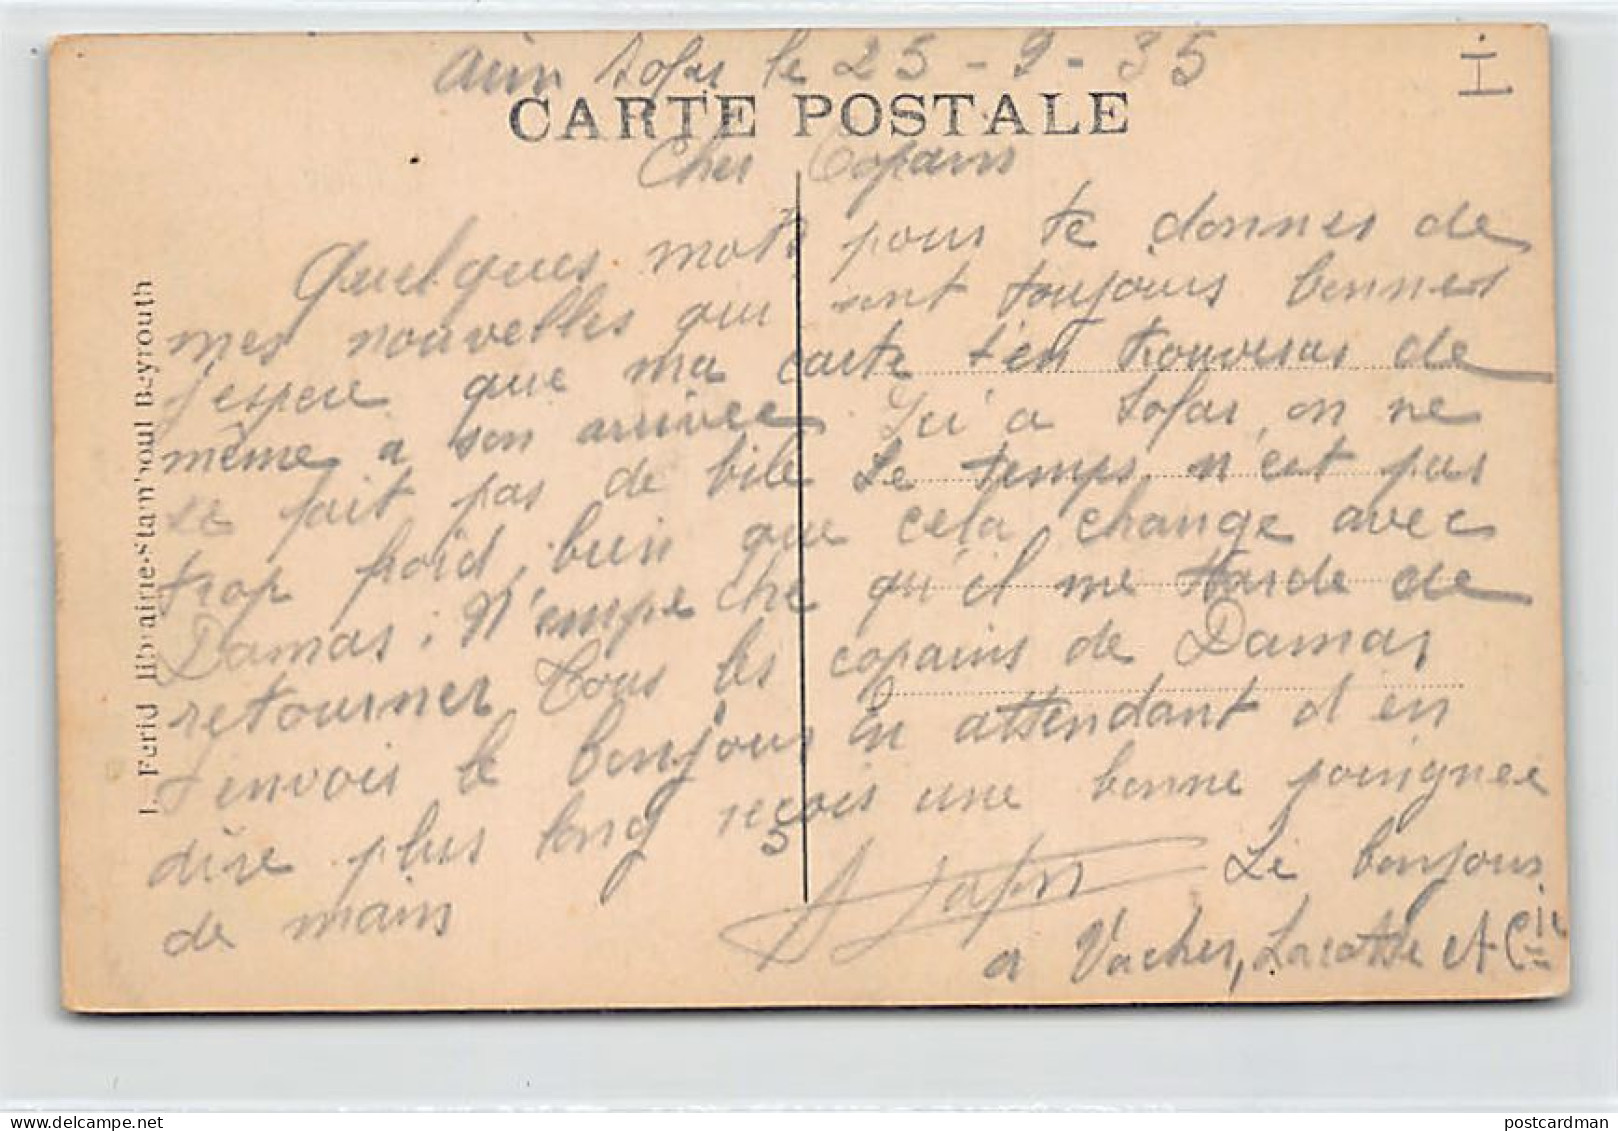 Aïn Sofar le 25-9-35
CARTE POSTALE
Cher Copains
Quelques mots pour te donner de
mes nouvelles qui sont toujours bonnes
j'espere que ma carte t'en trouveras de
même a son arrivee Ici a Sofar, on ne
se fait pas de bile Le temps n'est pas
trop froid, bien que cela change avec
Damas. N'empeche qu'il me tarde de
retourner Tous les copains de Damas
t'envois le bonjour en attendant d'en
dire plus long reçois une bonne poingnee
de mains
Le bonjour
a Vacher, Lacoste et Cie
J. Ferid librairie-Stamboul Beyrouth
postcardman